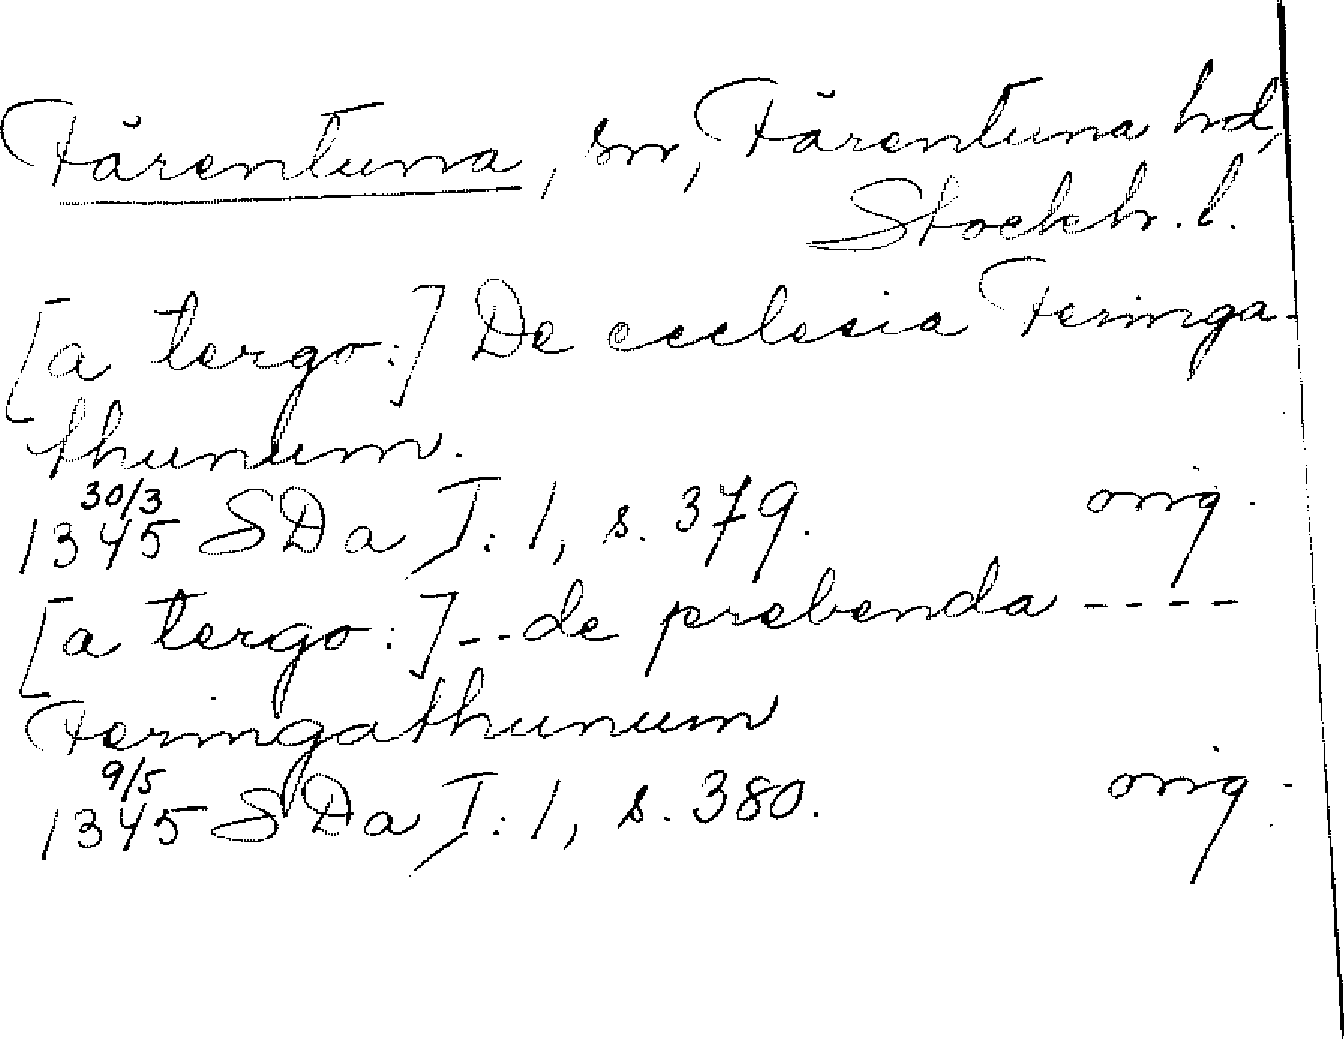 Färentuna, sn, Färentuna hd,
Stockh. l.
[a tergo:] De ecclesia Feringa-
thunum.
30/3
1345 SDa I: 1, s. 379. orig.
[a tergo:] -- de prebenda ----
Feringathunum
9/5
1345 SDa I: 1, s. 380. orig.